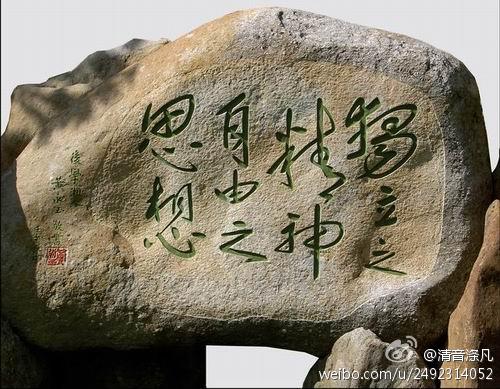 獨立之
精神
自由之
思想
黃永玉
@清音涤凡
weibo.com/u/2492314052